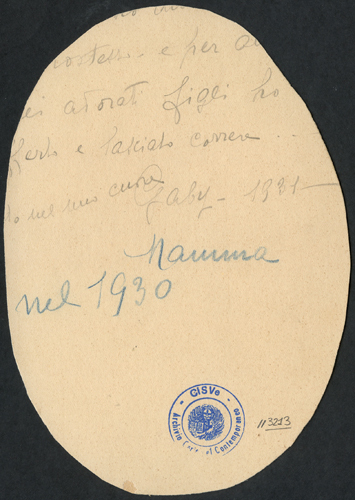 contessi - e per
miei adorati figli ho
offerto e lasciato correre ...
nel mio cuore Gaby - 1931 -
Mamma
nel 1930
CISVe
Archivio Carte del Contemporaneo
113213